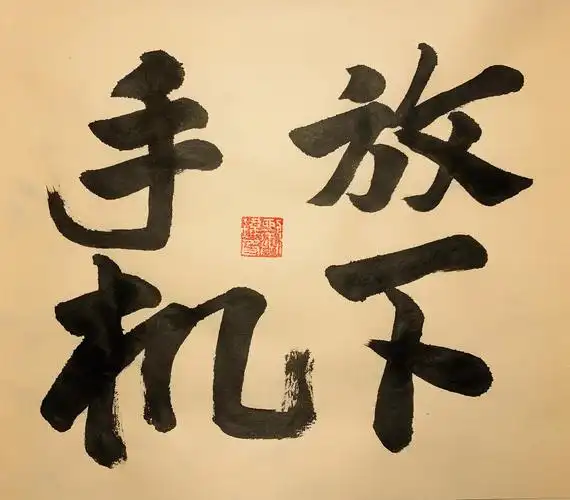 放下
手机